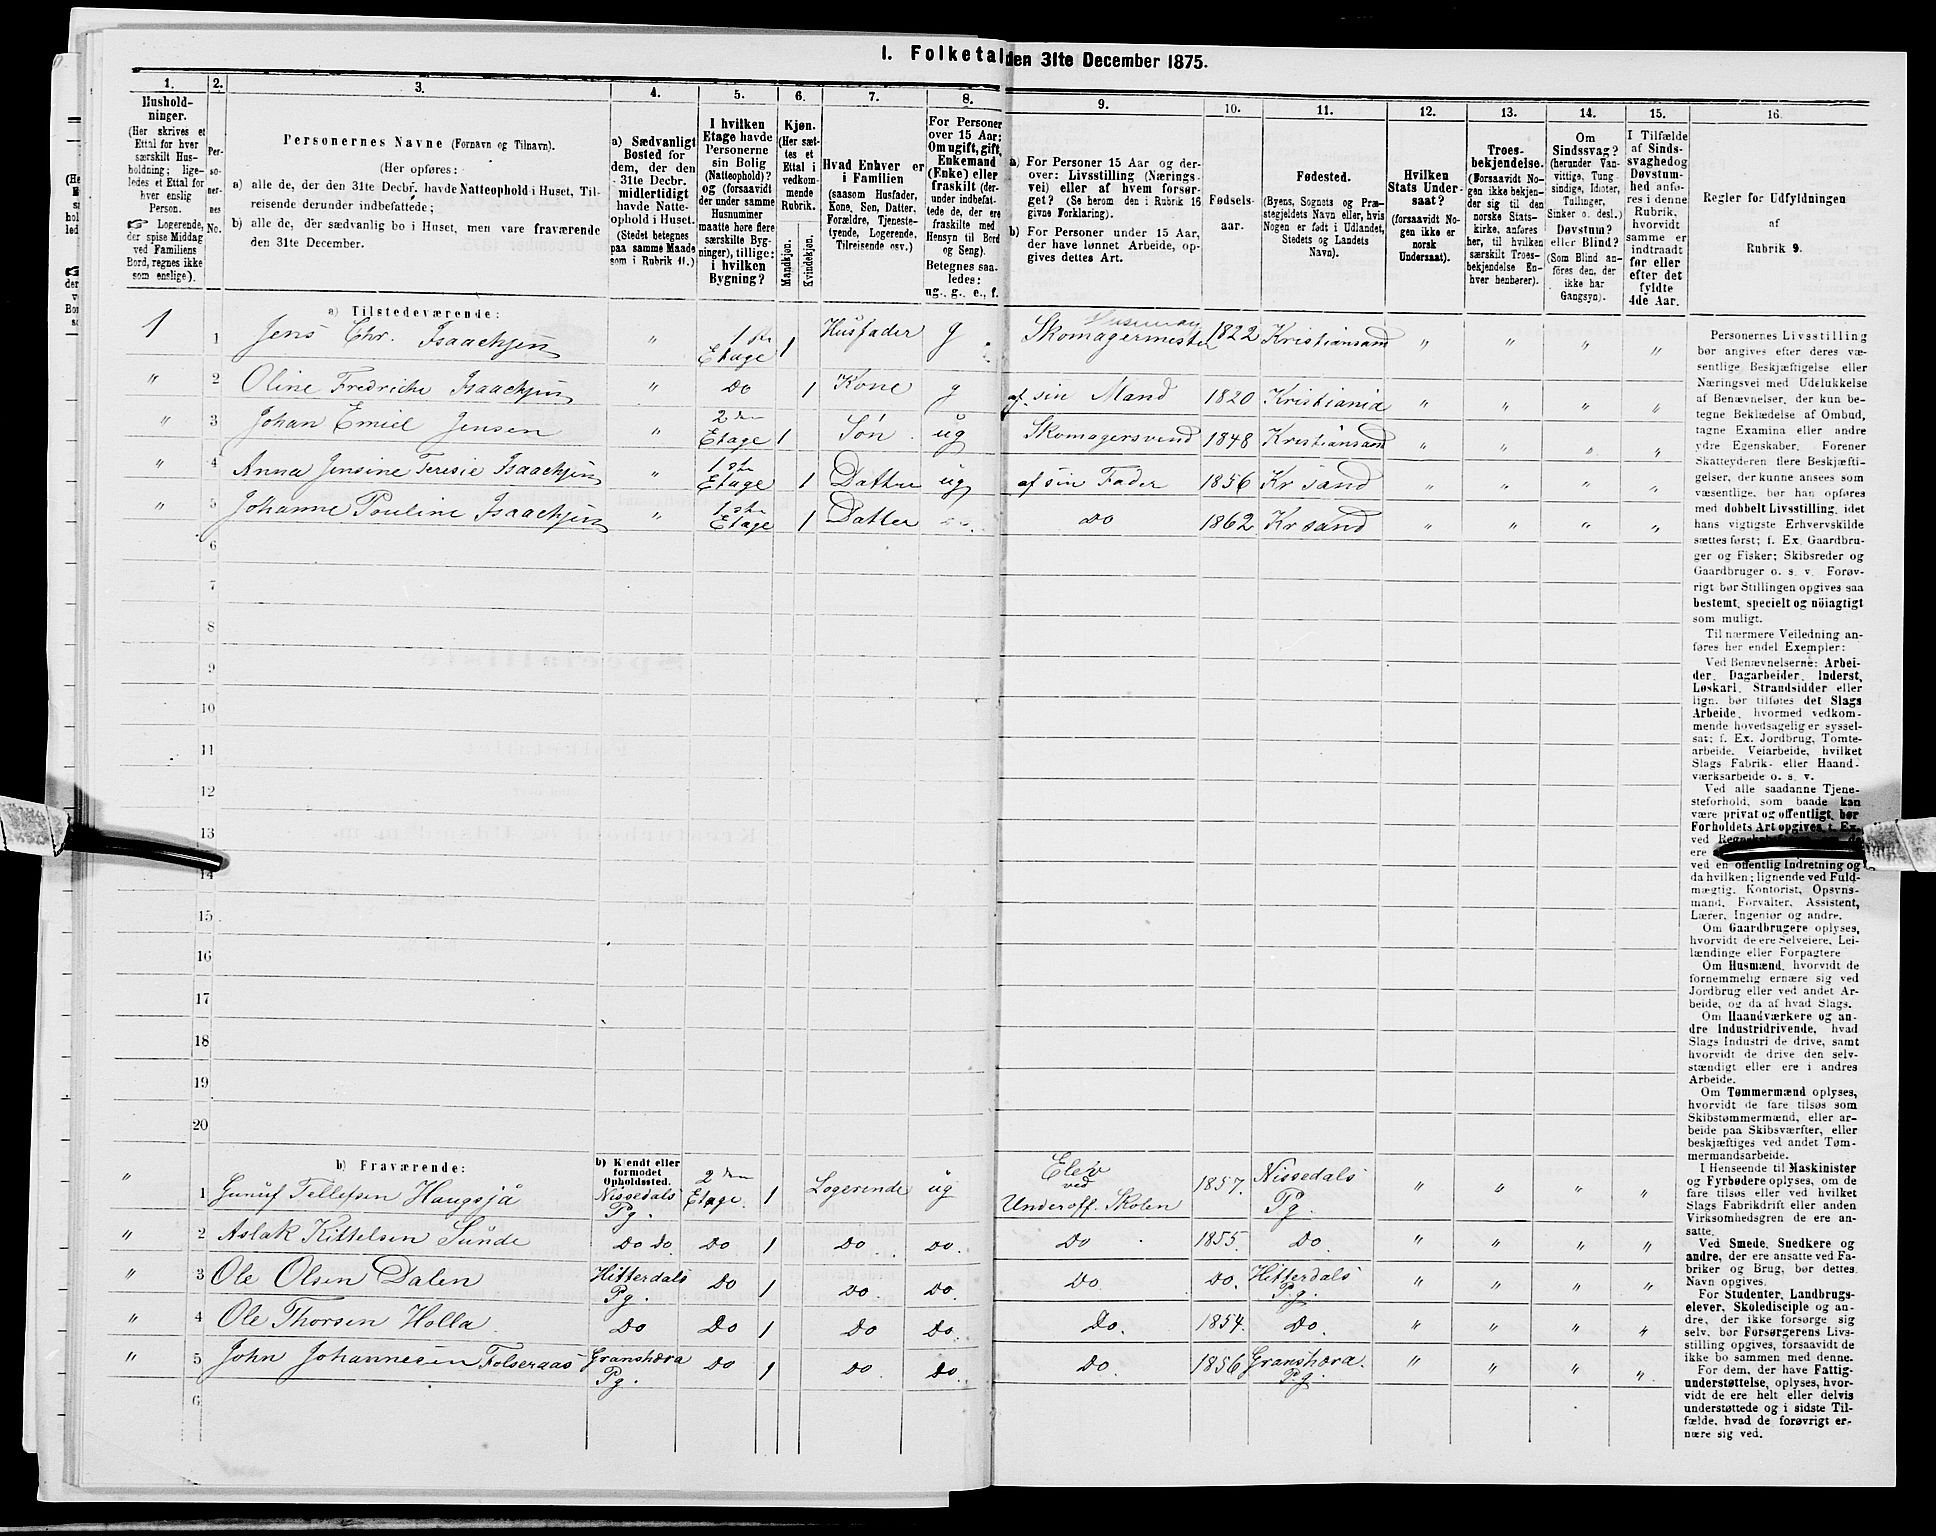 I. Folketal den 31te December 1875.
1. 2. 3. 4. 5. 6. 7. 8. 9. 10. 11. 12. 13. 14. 15. 16.
Hushold-
ninger.
(Her skrives et
Ettal for hver
særskilt Hus-
holdning; lige-
ledes et Ettal for
hver enslig
Person.
☞ Logerende,
der spise Middag
ved Familiens
Bord, regnes ikke
som enslige).
Per-
so-
ner-
nes
No.
Personernes Navne (Fornavn og Tilnavn).
(Her opføres:
a) alle de, der den 31te Decbr. havde Natteophold i Huset, Til-
reisende derunder indbefattede;
b) alle de, der sædvanlig bo i Huset, men vare fraværende
den 31te December.
a) Sædvanligt
Bosted for
dem, der den
31te Decbr.
midlertidigt
havde Natte-
ophold i Huset.
(Stedet betegnes
paa samme Maade
som i Rubrik 11.)
I hvilken
Etage havde
Personerne
sin Bolig
(Natteophold)?
og (forsaavidt
der under samme
Husnummer
maatte høre flere
særskilte Byg-
ninger), tillige:
i hvilken
Bygning?
Kjøn.
(Her sæt-
tes et
Ettal i
vedkom-
mende
Rubrik.
Mandkjøn.
Kvindekjøn.
Hvad Enhver er
i Familien
(saasom Husfader,
Kone, Søn, Datter,
Forældre, Tjeneste-
tyende, Logerende,
Tilreisende osv.)
For Personer
over 15 Aar:
Om ugift, gift,
Enkemand
(Enke) eller
fraskilt (der-
under indbefat-
tede de, der ere
fraskilte med
Hensyn til Bord
og Seng).
Betegnes saa-
ledes:
ug., g., e., f.
a) For Personer 15 Aar og der-
over: Livsstilling (Nærings-
vei) eller af hvem forsør-
get? (Se herom den i Rubrik 16
givne Forklaring).
b) For Personer under 15 Aar,
der have lønnet Arbeide, op-
gives dettes Art.
Fødsels-
aar.
Fødested.
(Byens, Sognets og Præ-
stegjeldets Navn eller, hvis
Nogen er født i Udlandet,
Stedets og Landets
Navn).
Hvilken
Stats Under-
saat?
(forsaavidt No-
gen ikke er
norsk
Undersaat).
Troes-
bekjendelse.
(Forsaavidt No-
gen ikke bekjen-
der sig til den
norske Stats-
kirke, anføres
her, til hvilken
særskilt Troes-
bekjendelse En-
hver henhører).
Om
Sindssvag?
(herunder Van-
vittige, Tung-
sindige, Idioter,
Tullinger,
Sinker o. desl.)
Døvstum?
eller Blind?
(Som Blind an-
føres den, der
ikke har
Gangsyn).
I Tilfælde
af Sinds-
svaghed og
Døvstum-
hed anfø-
res i denne
Rubrik,
hvorvidt
samme er
indtraadt
før eller
efter det
fyldte
4de Aar.
Regler for Udfyldningen
af
Rubrik 9.
a) Tilstedeværende:
1 1 Jens Chr. Isaachsen " 1ste Etage 1 Husfader g Skomagermester 1822 Kristiansand " " " "
" 2 Oline Fredrikke Isaachsen " Do 1 Kone g af sin Mand 1820 Kristiania " " " "
" 3 Johan Emiel Jensen " 2den Etage 1 Søn ug Skomagersvend 1848 Kristiansand " " " "
" 4 Anna Jensine Teresie Isaachsen " 1ste Etage 1 Datter ug af sin Fader 1856 Kr sand " " " "
" 5 Johanne Pouline Isaachsen " 1ste Etage 1 Datter Do 1862 Kr sand " " " "
6
7
8
9
10
11
12
13
14
15
16
17
18
19
20
b) Fraværende:
b) Kjendt eller
formodet
Opholdssted.
" 1 Gunuf Tellefsen Haugsjå Nissedals Pg. 2den Etage. 1 Logerende ug Elev ved Underoff. Skolen 1857. Nissedals Pg. " " " "
" 2 Aslak Kittelsen Sunde Do Do. Do 1 Do. Do. Do 1855. Do. " " " "
" 3 Ole Olsen Dalen Hitterdals Pg. Do 1 Do. Do. Do. Do. Hitterdals P.g. " " " "
" 4 Ole Thorsen Holla Do Do 1 Do Do. Do. 1854. Do. " " " "
" 5 John Johannesen Folseraas Granshæra Pg. Do 1 Do. Do. Do 1856 Granshæra. P.g. " " " "
6
Personernes Livsstilling
bør angives efter deres væ-
sentlige Beskjæftigelse eller
Næringsvei med Udelukkelse
af Benævnelser, der kun be-
tegne Beklædelse af Ombud,
tagne Examina eller andre
ydre Egenskaber. Forener
Skatteyderen flere Beskjæfti-
gelser, der kunne ansees som
væsentlige, bør han opføres
med dobbelt Livsstilling, idet
hans vigtigste Erhvervskilde
sættes først; f. Ex. Gaardbru-
ger og Fisker; Skibsreder og
Gaardbruger o. s. v. Forøv-
rigt bør Stillingen opgives saa
bestemt, specielt og nöiagtigt
som muligt.
Til nærmere Veiledning an-
føres her endel Exempler:
Ved Benævnelserne: Arbei-
der, Dagarbeider, Inderst,
Løskarl, Strandsidder eller
lign. bør tilføies det Slags
Arbeide, hvormed vedkom-
mende hovedsagelig er syssel-
sat; f. Ex. Jordbrug, Tomte-
arbeide, Veiarbeide, hvilket
Slags Fabrik- eller Haand-
værksarbeide o. s. v.
Ved alle saadanne Tjene-
steforhold, som baade kan
være privat og offentligt, bør
Forholdets Art opgives, f. Ex.
ved
ere
ved en offentlig Indretning og
da hvilken; lignende ved Fuld-
mægtig, Kontorist, Opsyns-
mand, Forvalter, Assistent,
Lærer, Ingeniør og andre.
Om Gaardbrugere oplyses,
hvorvidt de ere Selveiere, Lei-
lændinge eller Forpagtere
Om Husmænd, hvorvidt de
fornemmelig ernære sig ved
Jordbrug eller ved andet Ar-
beide, og da af hvad Slags.
Om Haandværkere og an-
dre Industridrivende, hvad
Slags Industri de drive, samt
hvorvidt de drive den selv-
stændigt eller ere i andres
Arbeide.
Om Tømmermænd oplyses,
hvorvidt de fare tilsøs som
Skibstømmermænd, eller ar-
beide paa Skibsværfter, eller
beskjæftiges ved andet Tøm-
mermandsarbeide.
I Henseende til Maskinister
og Fyrbødere oplyses, om de
fare tilsøs eller ved hvilket
Slags Fabrikdrift eller anden
Virksomhedsgren de ere an-
satte.
Ved Smede, Snedkere og
andre, der ere ansatte ved Fa-
briker og Brug, bør dettes
Navn opgives.
For Studenter, Landbrugs-
elever, Skoledisciple og an-
dre, der ikke forsørge sig
selv, bør Forsørgerens Livs-
stilling opgives, forsaavidt de
ikke bo sammen med denne.
For dem, der have Fattig-
understøttelse, oplyses, hvor-
vidt de ere helt eller delvis
understøttede og i sidste Til-
fælde, hvad de forøvrigt er-
nære sig ved.